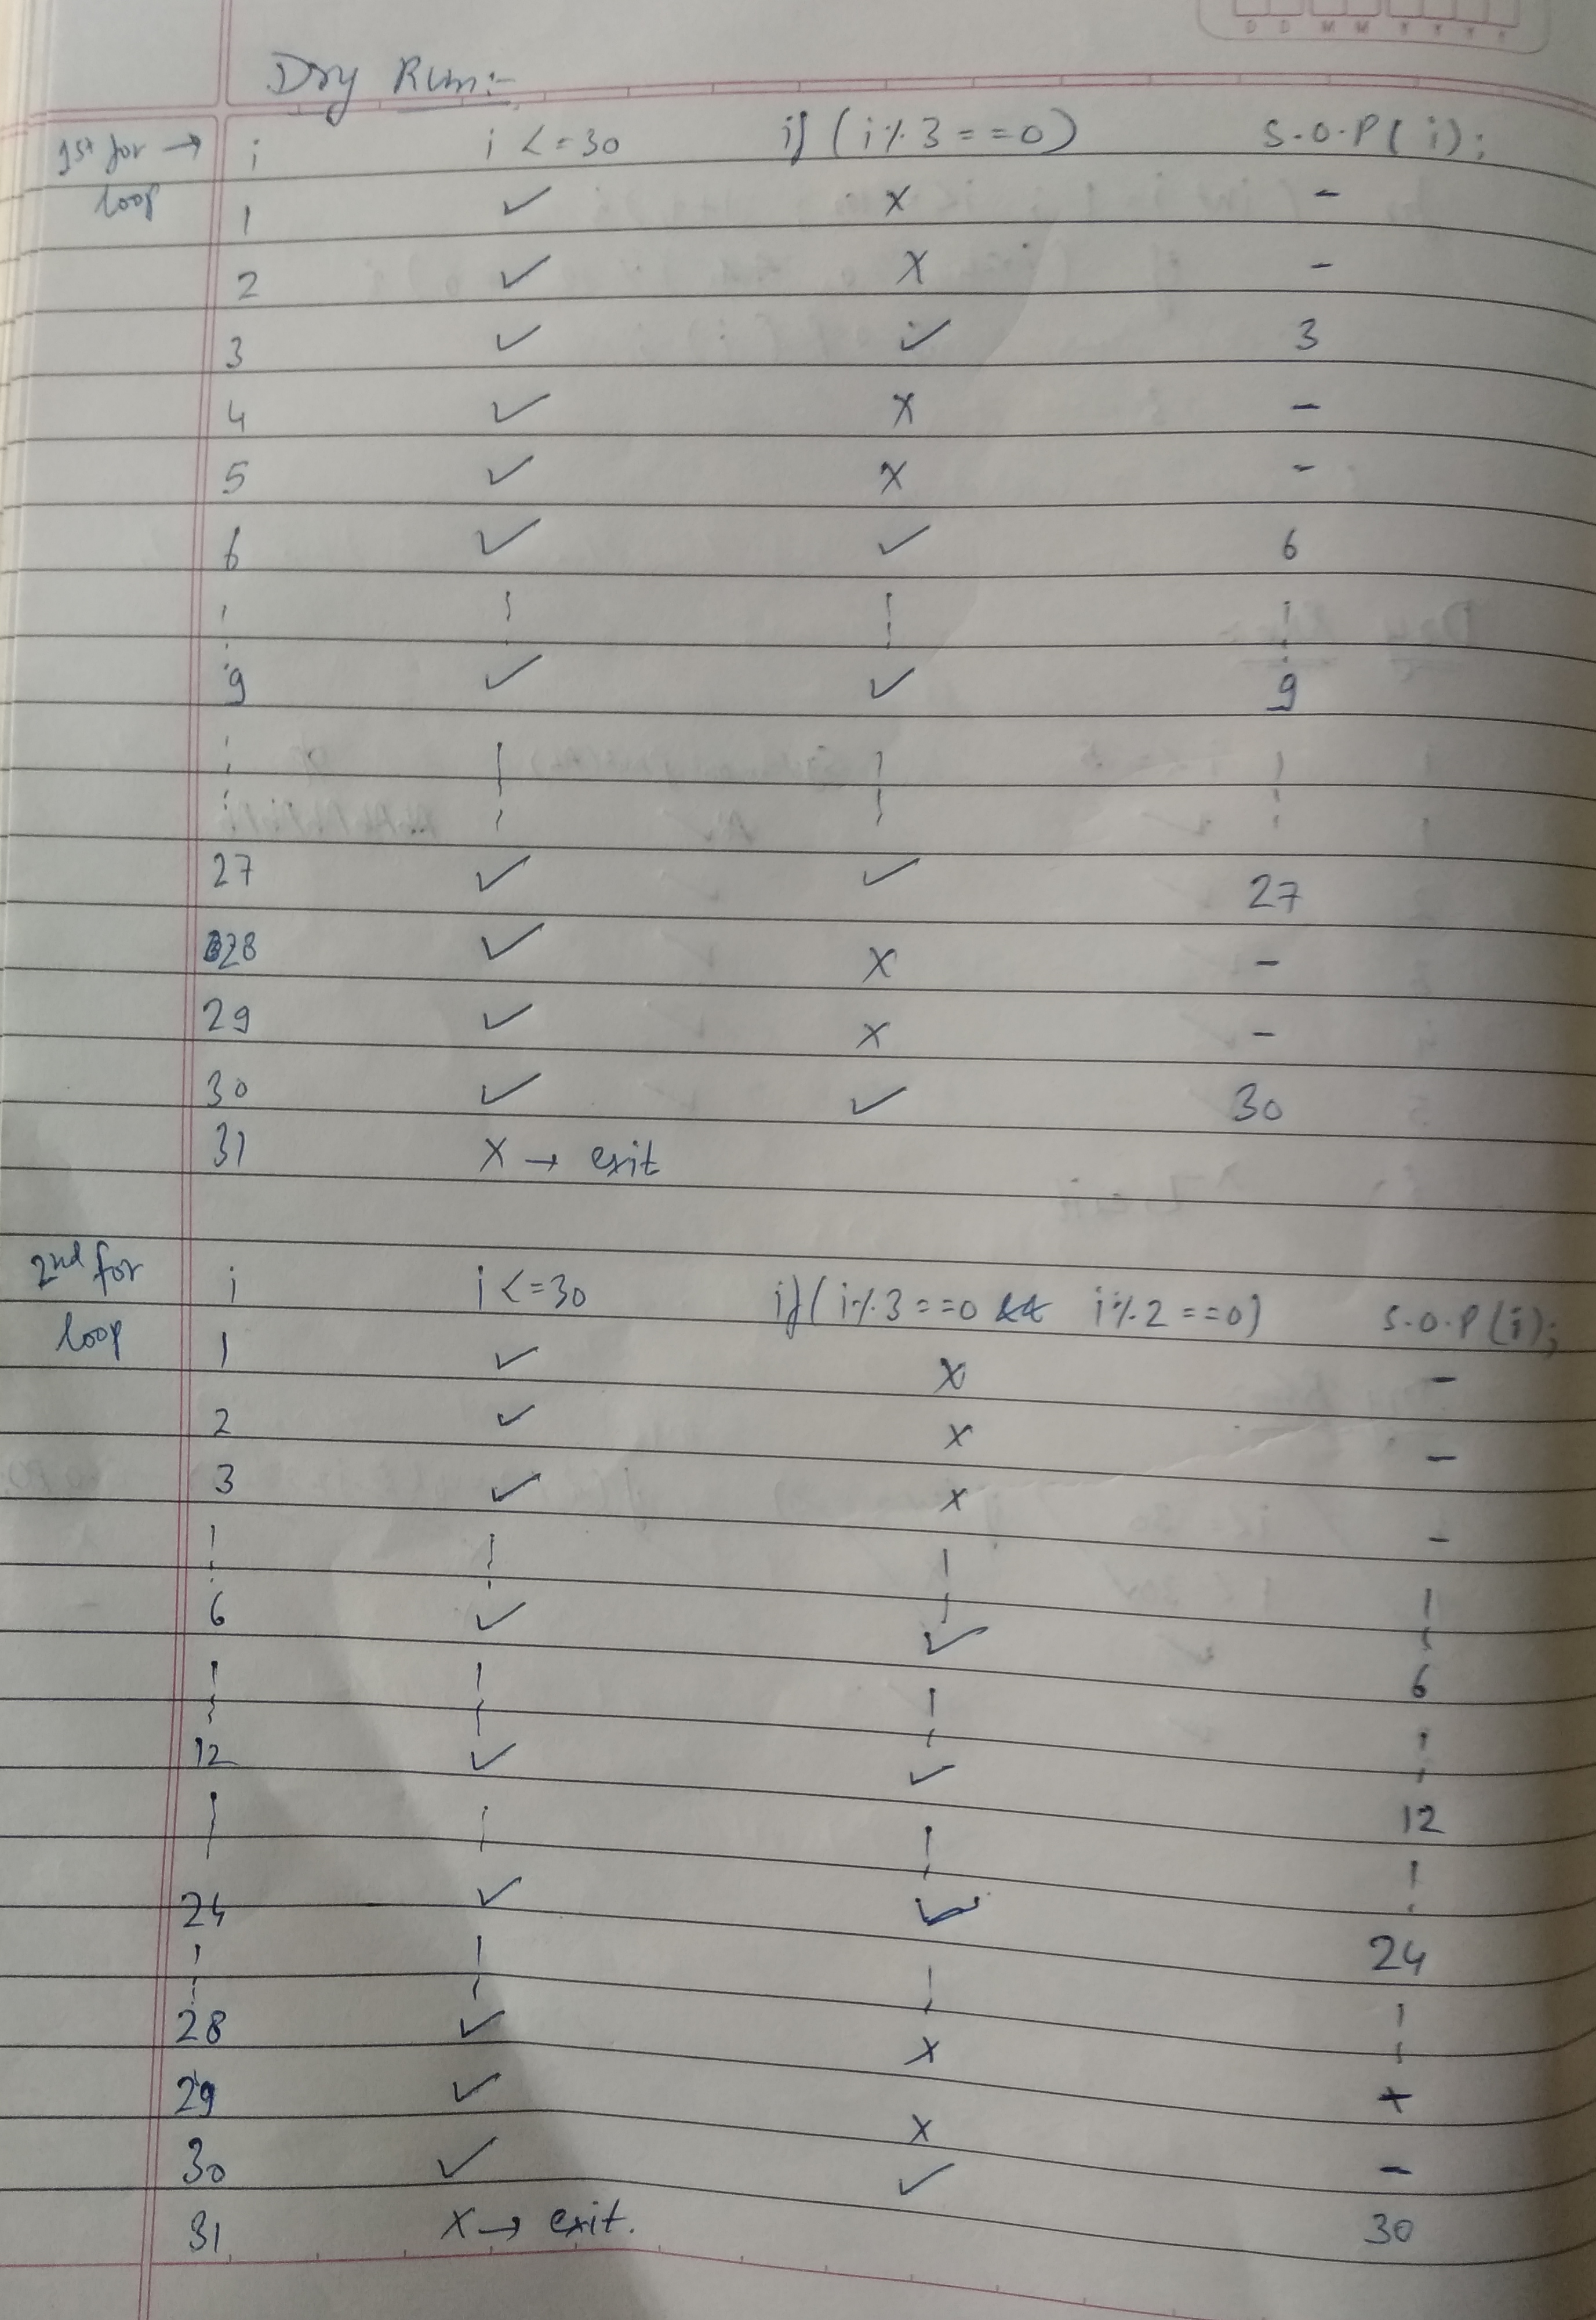 D D M M Y Y Y Y
Dry Run:-
1st for → i i <= 30 if (i % 3 == 0) S.O.P(i);
loop 1 ✓ x -
2 ✓ x -
3 ✓ ✓ 3
4 ✓ x -
5 ✓ x -
6 ✓ ✓ 6
9 ✓ ✓ 9
27 ✓ ✓ 27
28 ✓ x -
29 ✓ x -
30 ✓ ✓ 30
31 x → exit
2nd for i i <= 30 if (i % 3 == 0 && i % 2 == 0) S.O.P(i);
loop 1 ✓ x -
2 ✓ x -
3 ✓ x -
6 ✓ ✓ 6
12 ✓ ✓ 12
24 ✓ ✓ 24
28 ✓ x -
29 ✓ x -
30 ✓ ✓ 30
31 x → exit.